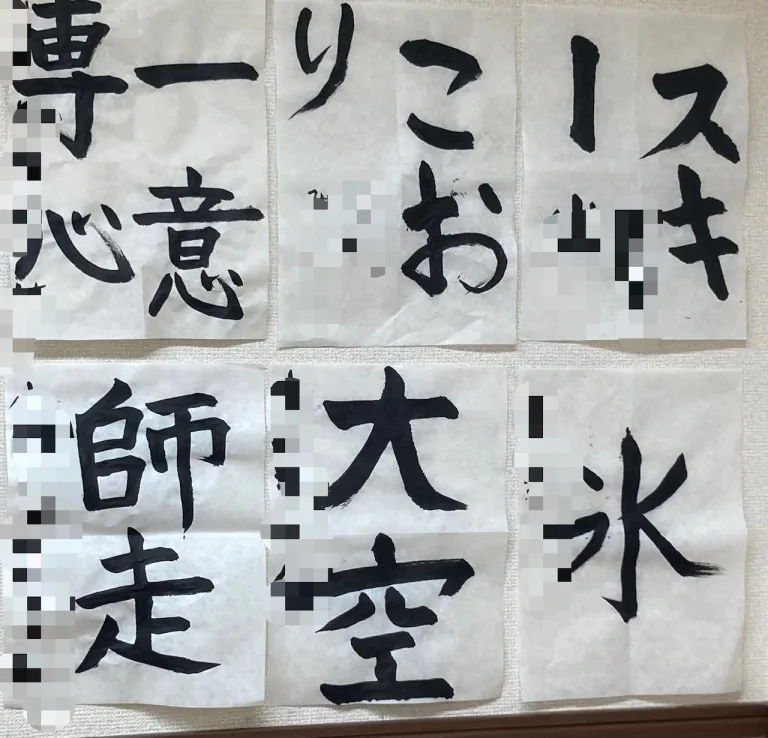 スキ
ー
こお
り
一意
専心
氷
大空
師走